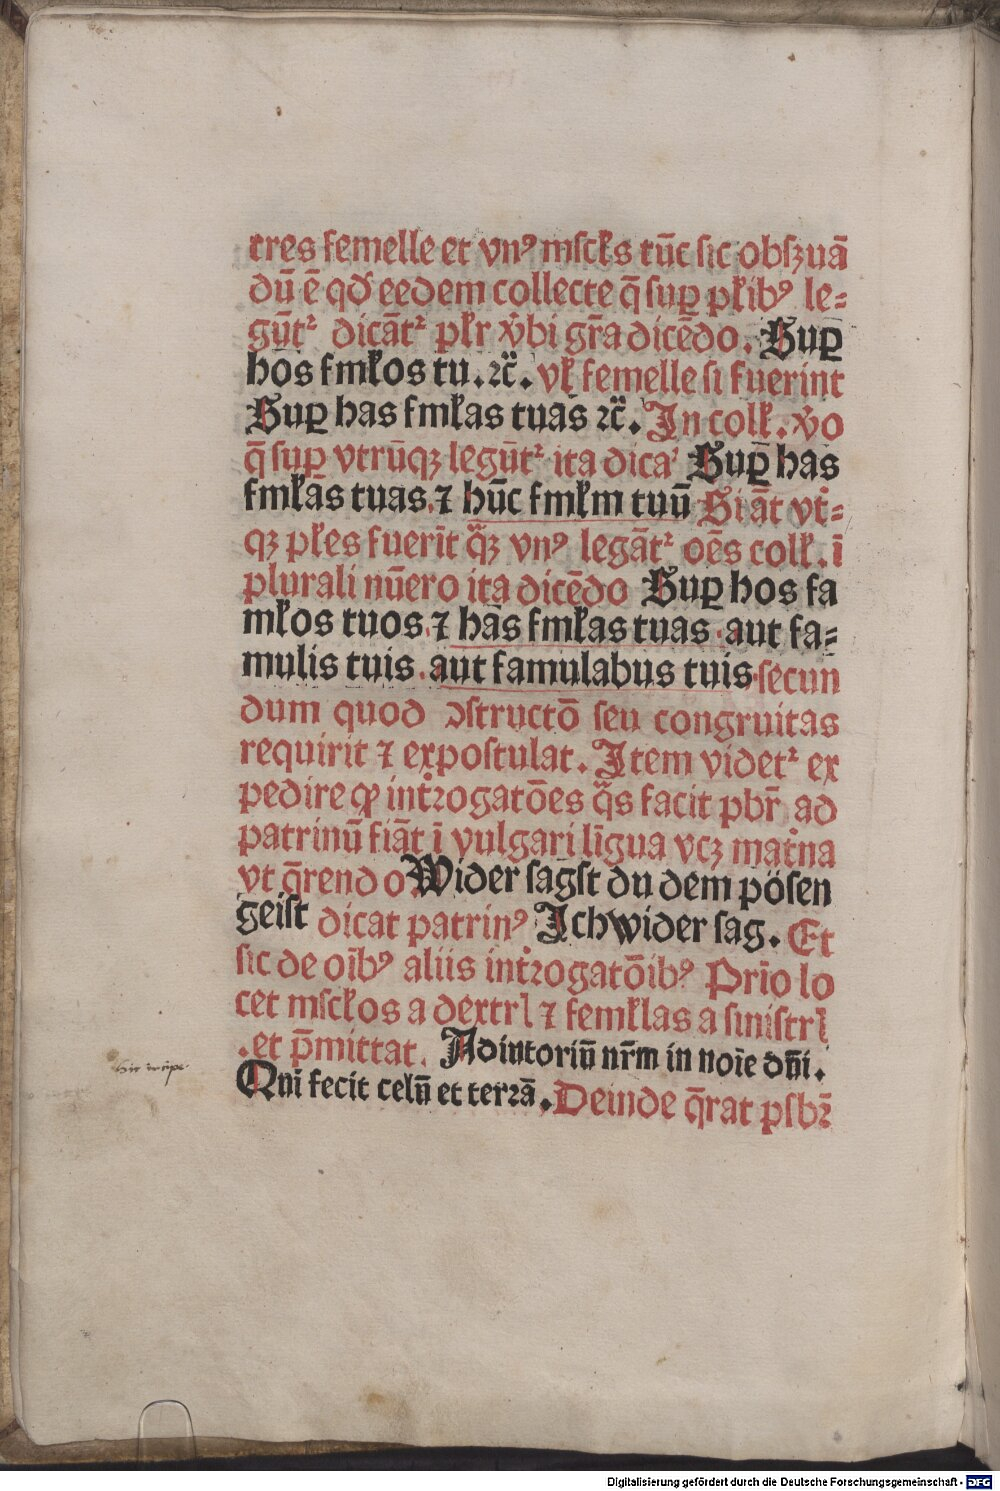 tres femelle et vnꝰ mſckꝉs tūc ſic obſʒuā
dū ē qđ eedem collecte q̄ ſuꝑ pꝉibꝰ le⸗
gūtᷣ dicātᷣ pꝉr v̓bi gr̄a dicēdo. Suꝑ
hos fmꝉos tu. ⁊c̄. vꝉ femelle ſi fuerint
Suꝑ has fmꝉas tuas ⁊c̄. In colꝉ. v̓o
q̄ ſuꝑ vtrūqꝫ legūtᷣ ita dicaᷣ Suꝑ has
fmꝉas tuas. ⁊ hūc fmꝉm tuū Si āt vt⸗
qꝫ pꝉes fuerīt q̈ꝫ vnꝰ legātᷣ oēs colꝉ. ī
plurali nūero ita dicēdo Suꝑ hos fa
mꝉos tuos. ⁊ has fmꝉas tuas . aut fa⸗
mulis tuis . aut famulabus tuis. ſecun
dum quod ↄſtructō ſeu congruitas
requirit ⁊ expoſtulat. Item videtᷣ ex
pedire ꝙ int̓rogatōes q̄s facit pbr̄ ad
patrinū fiāt ī vulgari līgua vcꝫ mat̓na
vt q̄rendo Wider ſagſt du dem pöſen
geiſt dicat patrinꝰ Ich wider ſag. Et
ſic de oībꝰ aliis int̓rogatōibꝰ Prīo lo
cet mſcꝉos a dextrꝭ ⁊ femꝉlas a ſiniſtrꝭ
. et p̄mittat. Adiutoriū nr̄m in noīe dn̄i.
Qui fecit celū et terrā. Deinde q̄rat pſbr̄
Digitalisierung gefördert durch die Deutsche Forschungsgemeinschaft - DFG